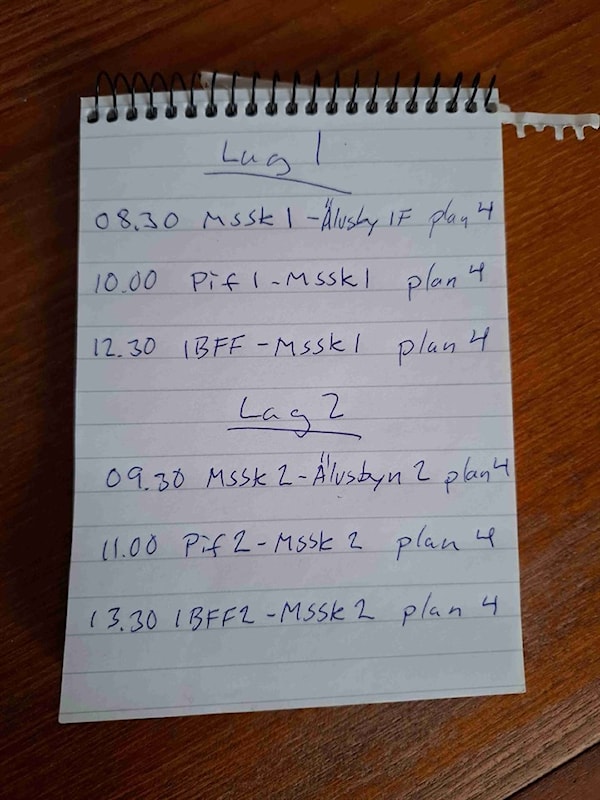 Lag 1
08.30 Mssk 1 - Älvsby IF plan 4
10.00 Pif 1 - Mssk 1 plan 4
12.30 IBFF - Mssk 1 plan 4
Lag 2
09.30 Mssk 2 - Älvsbyn 2 plan 4
11.00 Pif 2 - Mssk 2 plan 4
13.30 IBFF2 - Mssk 2 plan 4